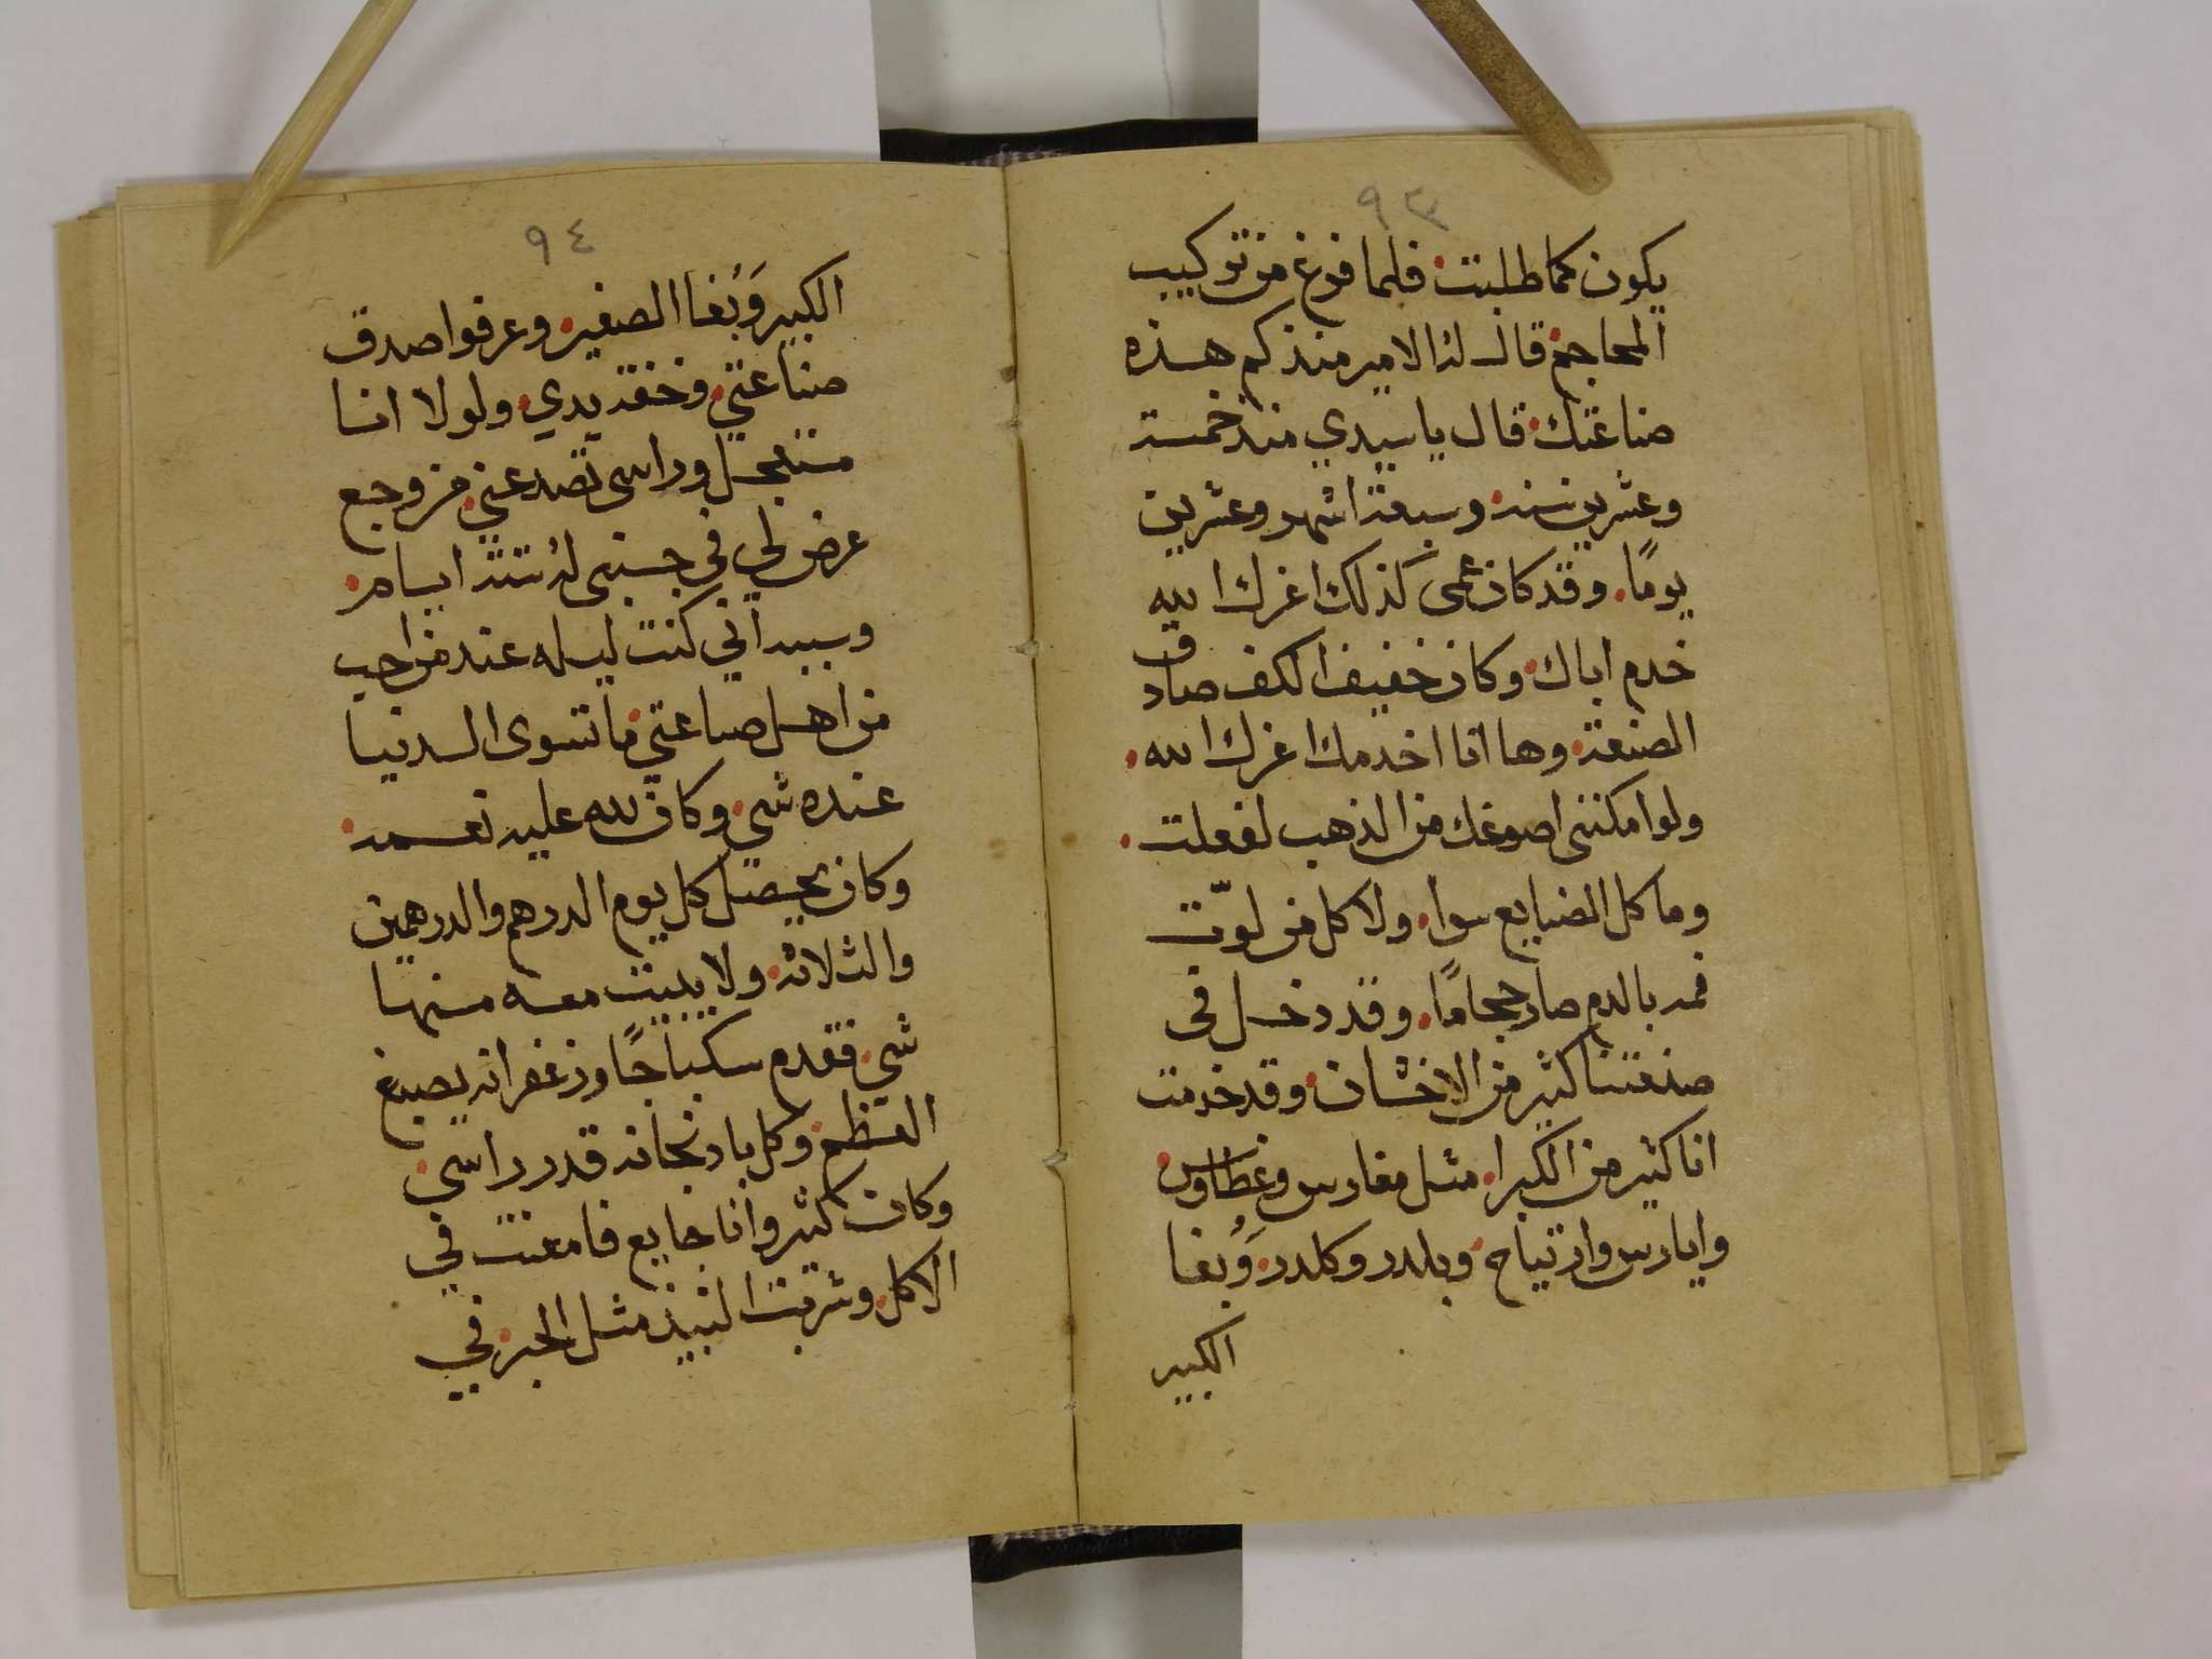 ٩٣
يكون كما طلبت فلما فرغ من تركيب
المحاجم قال له الامير منذ كم هذه
صناعتك قال يا سيدي منذ خمسة
وعشرين سنة وسبعة اشهر وعشرين
يومًا وقد كان عمى كذلك اعزك الله
خدم اباك وكان خفيف الكف صادق
الصنعة وها انا اخدمك اعزك الله
ولو امكننى اصوغك من الذهب لفعلت
وما كل الصنايع سوا ولا كل من لوّت
فمه بالدم صار حجامًا وقد دخل فى
صنعتنا كثير من الاخشان وقد خدمت
انا كثير من الكبرا مثل مفارس وغطاوس
وايارس وارتياح وبلدر وكلدر وَبُغا
الكبير
٩٤
الكبير وَبُغا الصغير وعرفوا صدق
صناعتي وخفة يدي ولولا انا
مستعجل وراسى تصدعني من وجع
عرض لي في جسنبى له ستة ايام
وسببه اني كنت ليله عند من احب
من اهل صناعتي ما تسوى الدنيا
عنده شي وكان لله عليه نعمة
وكان يحصل كل يوم الدرهم والدرهمين
والثلاثة ولا يبيت معه منها
شي فقدم سكباجًا وزعفرانه يصبغ
العظم وكل بادنجانه قدر راسي
وكان كثير وانا جايع فامعنت في
الاكل وشربت النبيذ مثل الحبر في